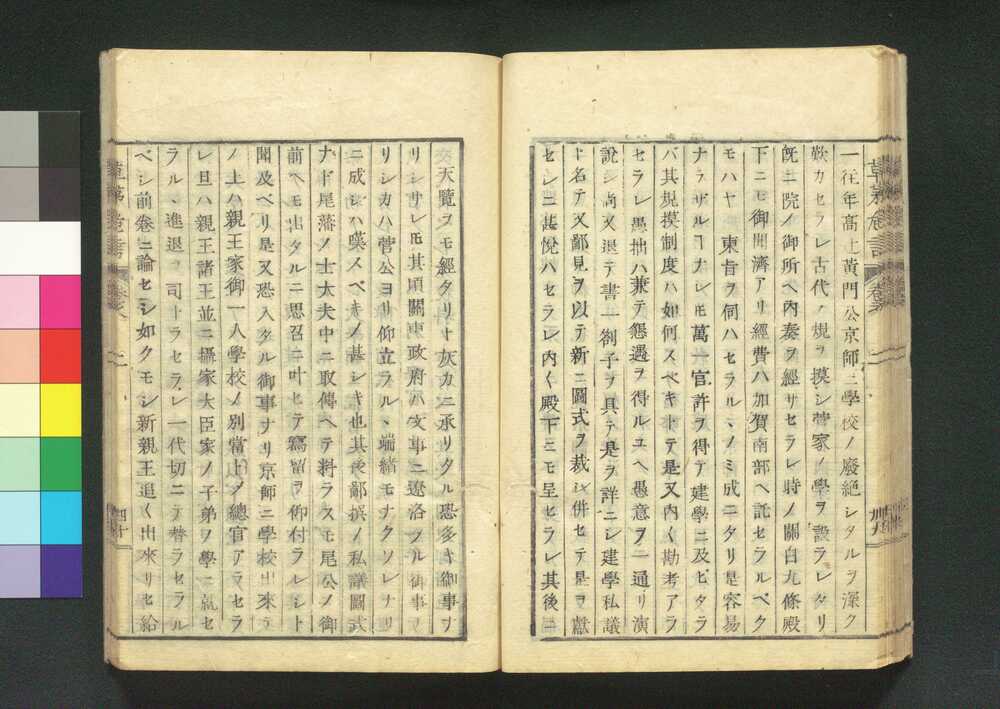 一往年高上黃門公京師ニ學校ノ廢絶シタルヲ深ク
歎カセラレ古代ノ規ヲ摸シ菅家ノ學ヲ設ラレタリ
既ニ院ノ御所ヘ內奏ヲ經サセラレ時ノ關白九條殿
下ニモ御開濟アリ經費ハ加賀南部ヘ託セラルベク
モハヤ 東肯ヲ伺ハセラルヽノミ成ニタリ是容易
ナラザルヿナレモ萬一官許ヲ得テ建學ニ及ヒタラ
バ其規摸制度ハ如何スベキトテ是又內〱勘考アラ
セラレ愚拙ハ兼テ懇遇ヲ得ルユヘ愚意ヲ一通リ演
說シ尚又退テ書一劄子ヲ具テ是ヲ詳ニシ建學私議
ト名テ又鄙見ヲ以テ新ニ圖式ヲ裁シ併セテ是ヲ獻
セシニ甚悅ハセラレ內〱殿下ニモ呈セラレ其後ニ
天覽ヲモ經タリナト灰カニ承リタル恐多キ御事ナ
リシサレ𪜈其頃關東政府ハ文事ニ遼洛ナル御事ナ
リシカハ菅公ヨリ仰立ラルヽ端緖モナクソレナリ
ニ成シハ嘆スベキノ甚シキ也其後鄙撰ノ私議圖式
ナド尾藩ノ士大夫中ニ取傳ヘテ料ラスモ尾公ノ御
前ヘモ出タルニ思召ニ叶ヒテ寫留ヲ仰付ラレシト
聞及ベリ是又恐入タル御事ナリ京師ニ學校出來ラ
ノ上ハ親王家御一人學校ノ別當ナトノ總官アラセラ
レ且ハ親王諸王並ニ攝家大臣家ノ子弟ヲ學ニ就セ
ラルヽ進退ヲ司トラセラレ一代切ニテ替ラセラル
ベシ前卷ニ論セシ如クモシ新親王追〱出來リセ給
草茅危言
卷ノ八